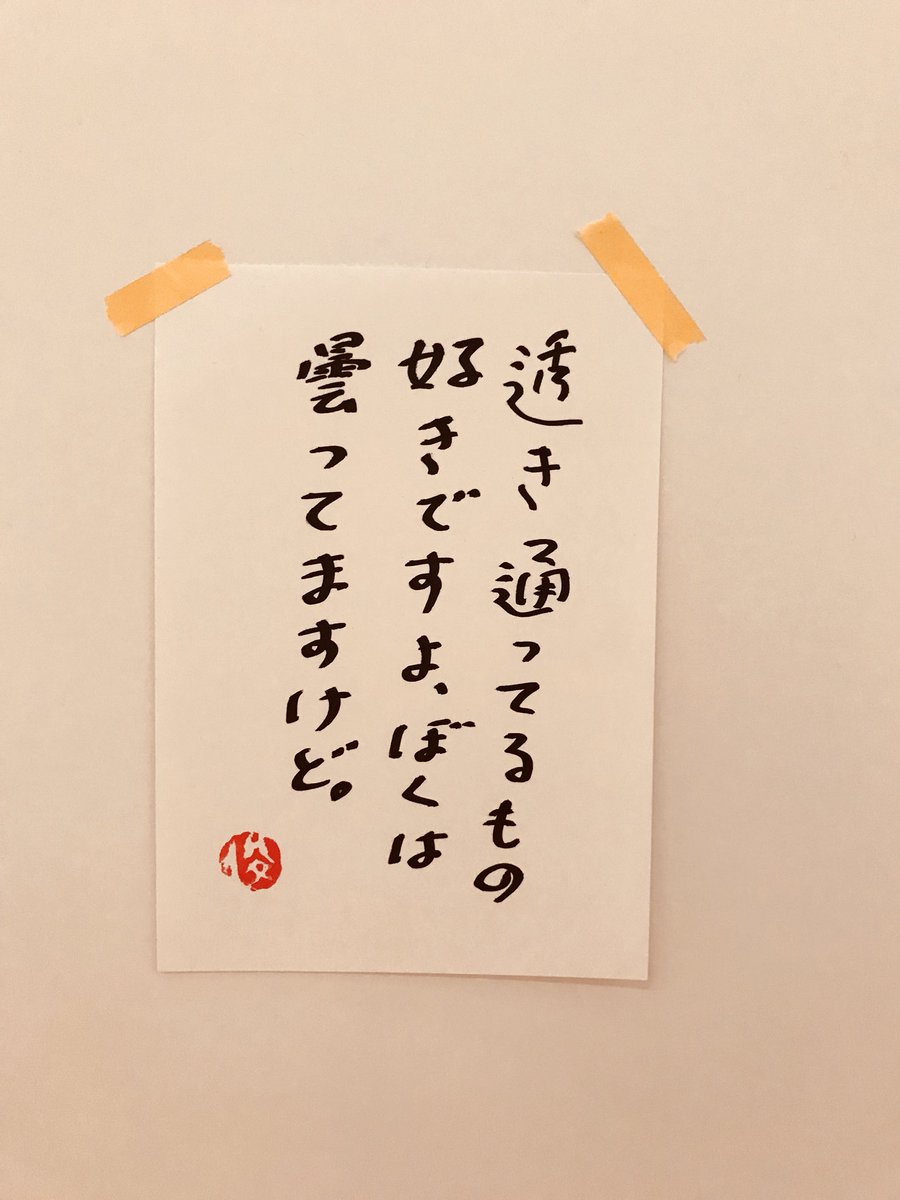 透き通ってるもの
好きですよ、ぼくは
曇ってますけど。
俊